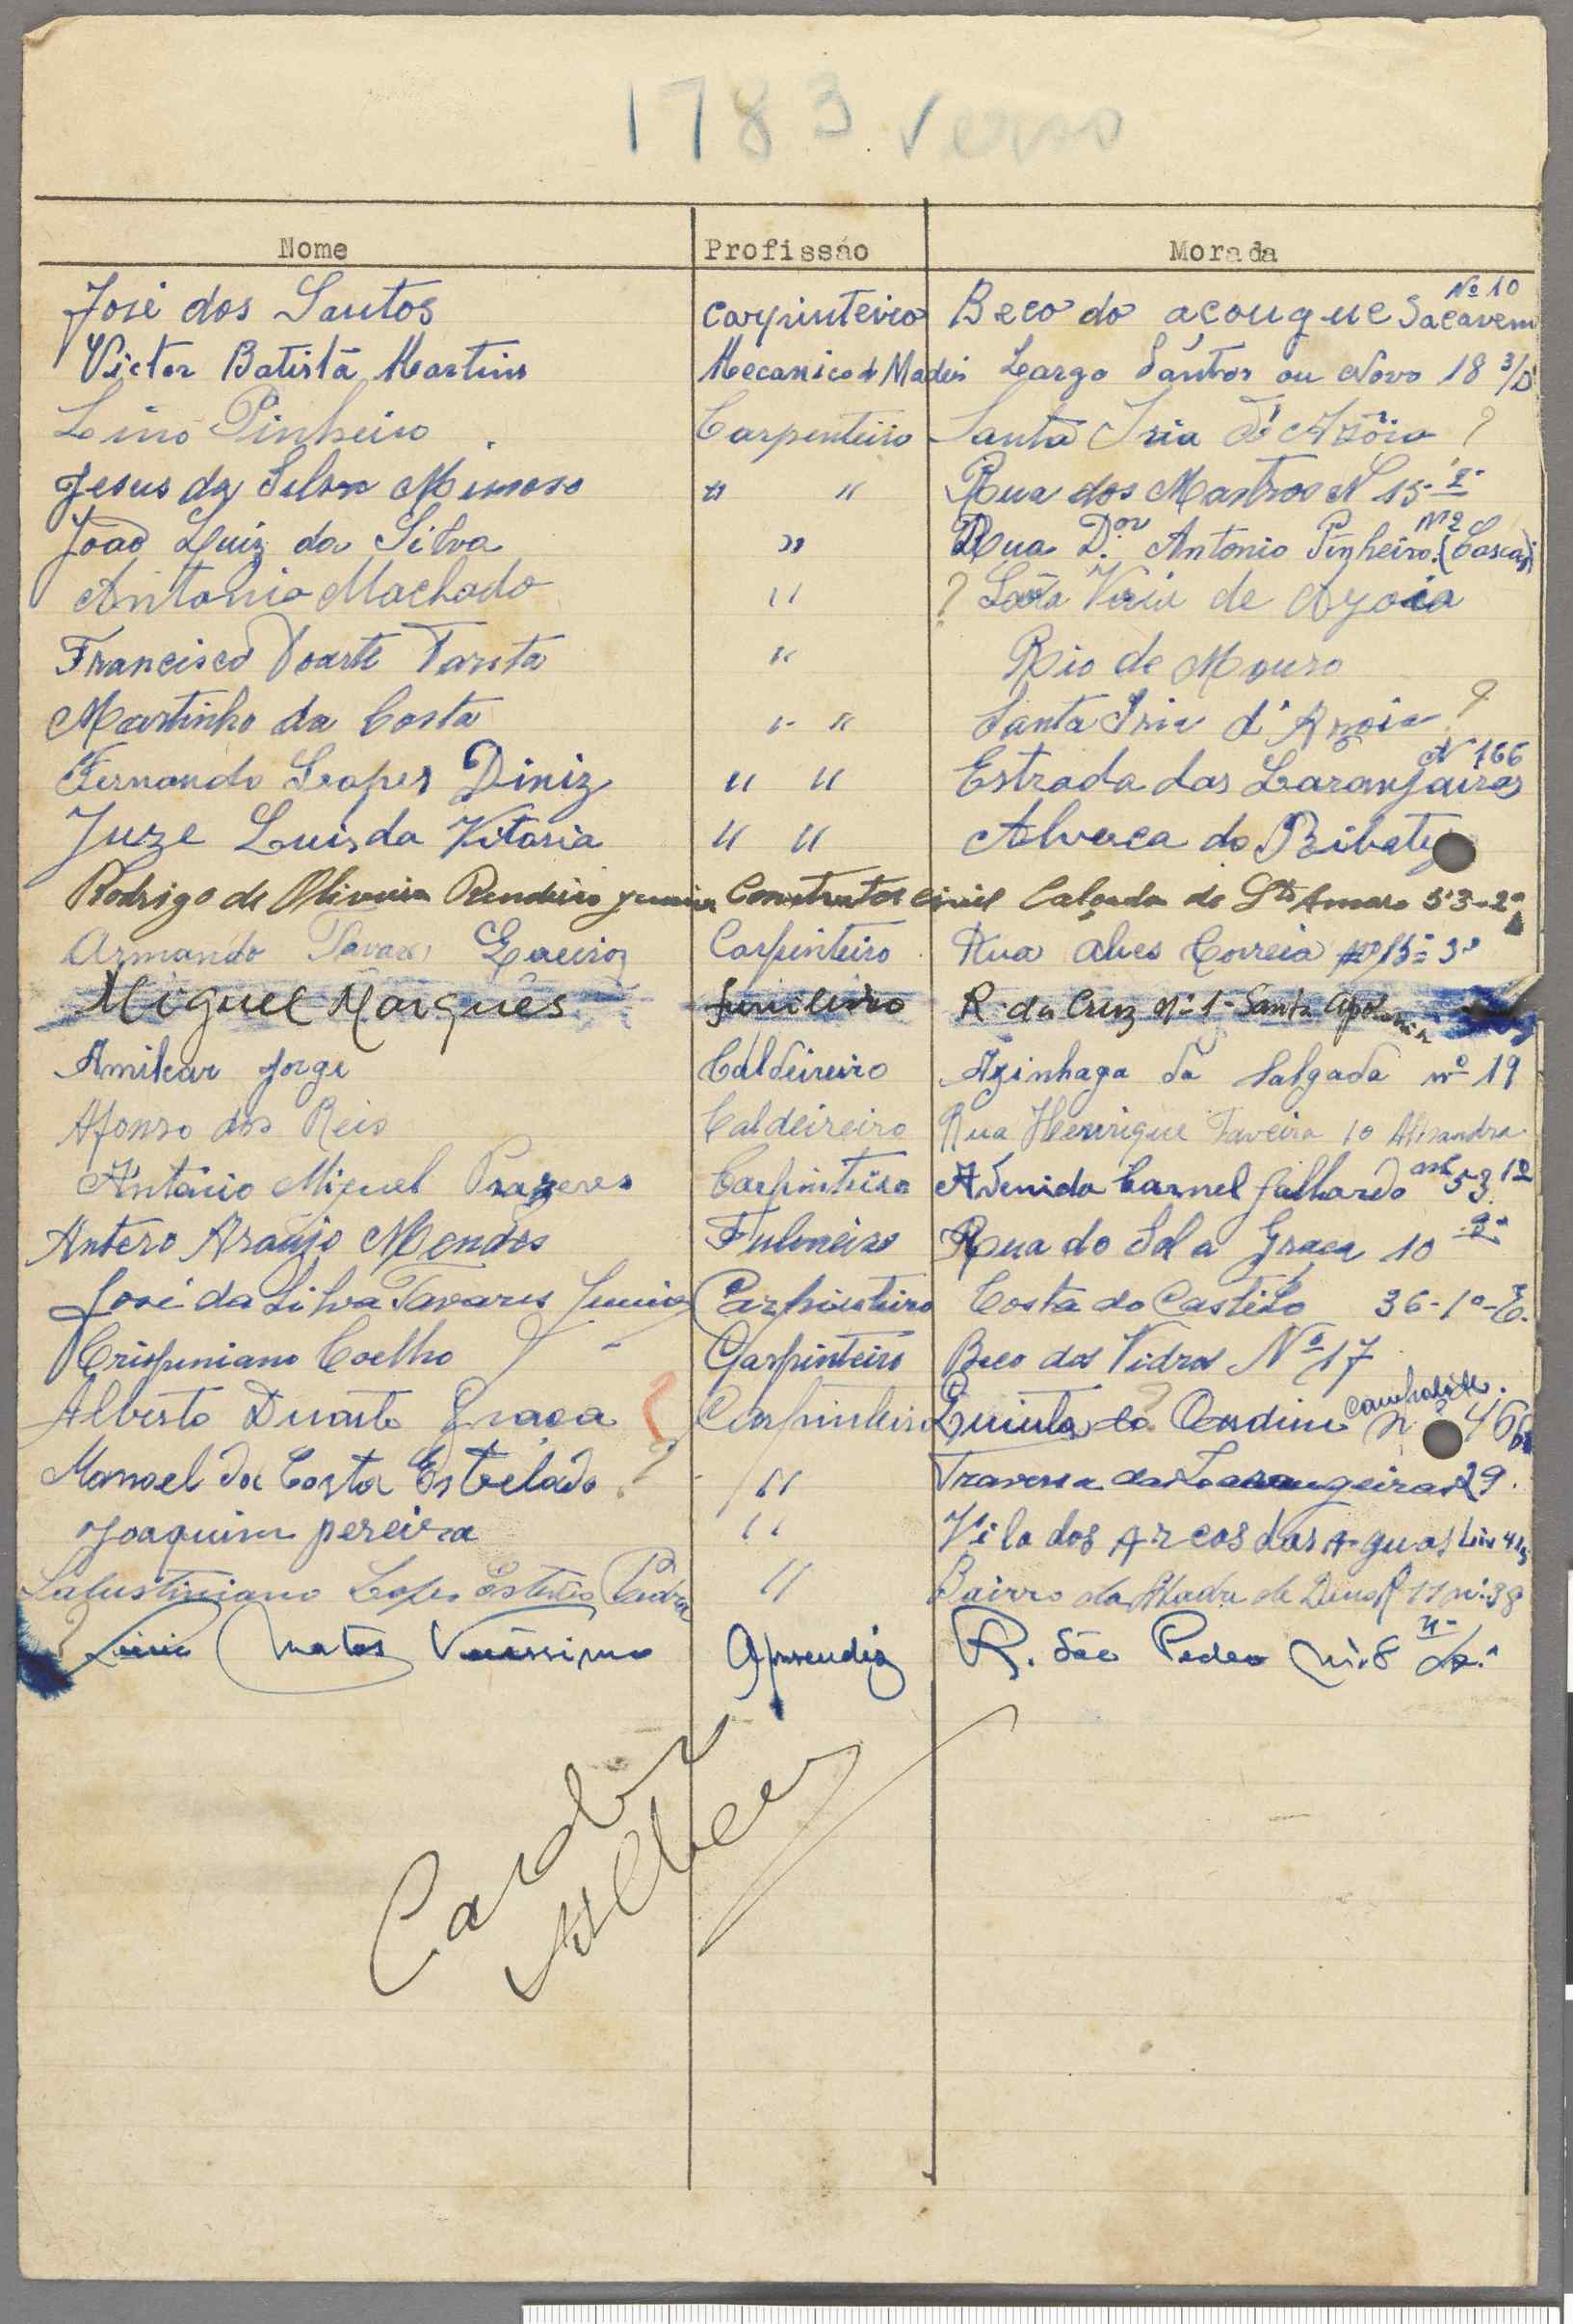 1783 verso
Nome Profissão Morada
José dos Santos Carpinteiro Beco do açougue Nº 10 Sacavem
Victor Batista Martins Mecanico d Madeis Largo Santos ou Novo 18 3/D
Lino Pinheiro Carpenteiro Santa Iria d'Azoia ?
Jesus da Silva Mimoso " " Rua dos Mastros Nº 15-2º
João Luiz da Silva " Rua D.or Antonio Pinheiro Nº 2 (Cascais)
Antonio Machado " ? Santa Iria de Azoia
Francisco Doarte " Rio de Mouro
Martinho da Costa " " Santa Iria d'Azoia ?
Fernando Lopes Diniz " " Estrada das Laranjairas N 166
Juze Luis da Vitoria " " Alverca do Ribatej
Rodrigo de Oliveira Rendeiro Junior Construtor Civil Calçada de Stº Amaro 53-2º
Armando Tavares Carpinteiro Rua Alves Correia nº 15-3º
Miguel Marques funileiro R. da Cruz nº 1- Santa Apolonia
Amilcar Jorge Caldeireiro Azinhaga da Salgada nº 19
Afonso dos Reis Caldeireiro Rua Henrique Taveira 10 Alhandra
António Miguel Prazeres Carpinteiro Avenida Carnel Galhardo 53
Antero Araujo Mendes Fulneiro Rua do Sol a Graça 10 2º
José da Silva Tavares Junior Carpinteiro Costa do Castélo 36-1º-E.
Crispiniano Coelho Carpinteiro Beco dos Vidros Nº 17
Alberto Duarte Graça Carpinteiro Quinta do Ourdim Campolide nº 46
Manoel da Costa Estrelado ? " Travessa das Larangeiras 29.
Joaquim pereira " Vila dos Arcos das Aguas Liv
Salustiniano Lopes Esteves " Bairro da Madre de Deus R 11 nº 38
? Matos Verissimo Aprendiz R. São Pedro nº 8